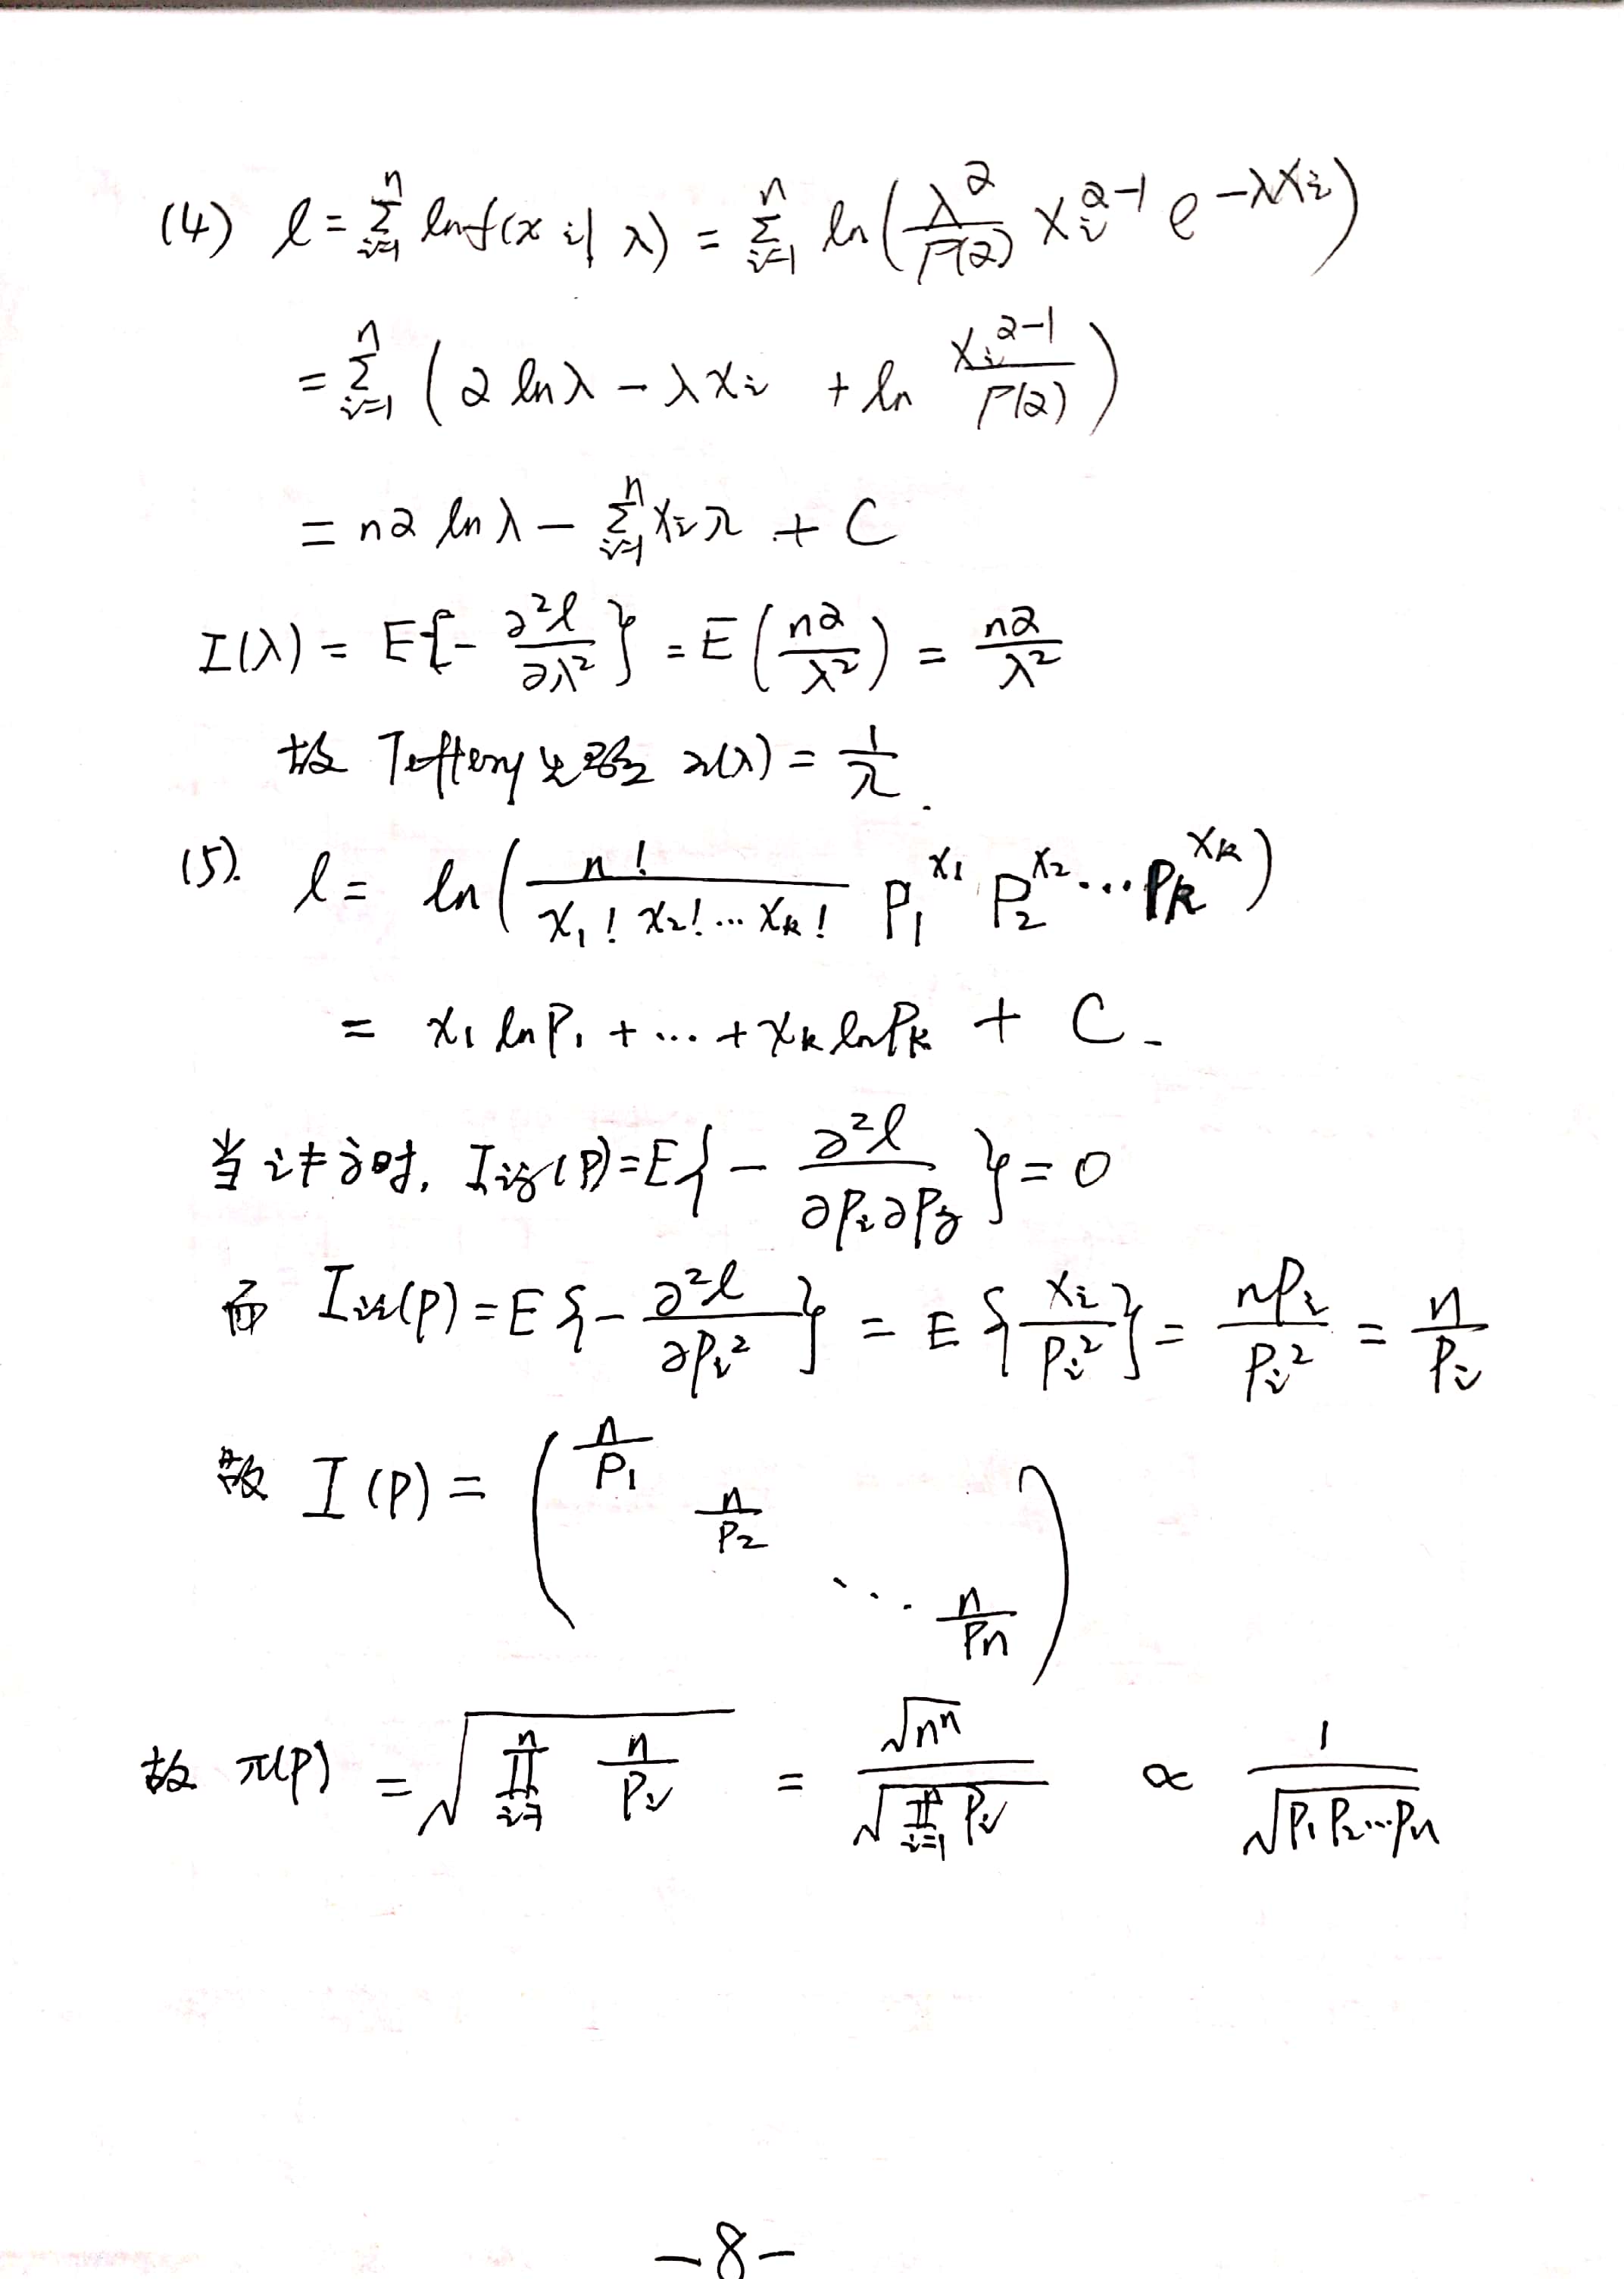 (4) l = Σ_{i=1}^{n} ln f(x_i | λ) = Σ_{i=1}^{n} ln( λ^α / Γ(α) x_i^{α-1} e^{-λx_i} )
= Σ_{i=1}^{n} ( α ln λ - λ x_i + ln x_i^{α-1} / Γ(α) )
= nα ln λ - Σ_{i=1}^{n} x_i λ + C
I(λ) = E{ - ∂²l / ∂λ² } = E( nα / λ² ) = nα / λ²
故 Jeffery 先验 π(λ) = 1/λ.
(5). l = ln( n! / x₁! x₂! … x_k! P₁^{x₁} P₂^{x₂} … P_k^{x_k} )
= x₁ ln P₁ + … + x_k ln P_k + C.
当 i ≠ j 时, I_{ij}(P) = E{ - ∂²l / ∂P_i ∂P_j } = 0
而 I_{ii}(P) = E{ - ∂²l / ∂P_i² } = E{ x_i / P_i² } = nP_i / P_i² = n / P_i
故 I(P) = ( n/P₁ n/P₂ ⋱ n/P_n )
故 π(P) = √( Π_{i=1}^{n} n/P_i ) = √(n^n) / √( Π_{i=1}^{n} P_i ) ∝ 1 / √( P₁ P₂ … P_n )
-8-